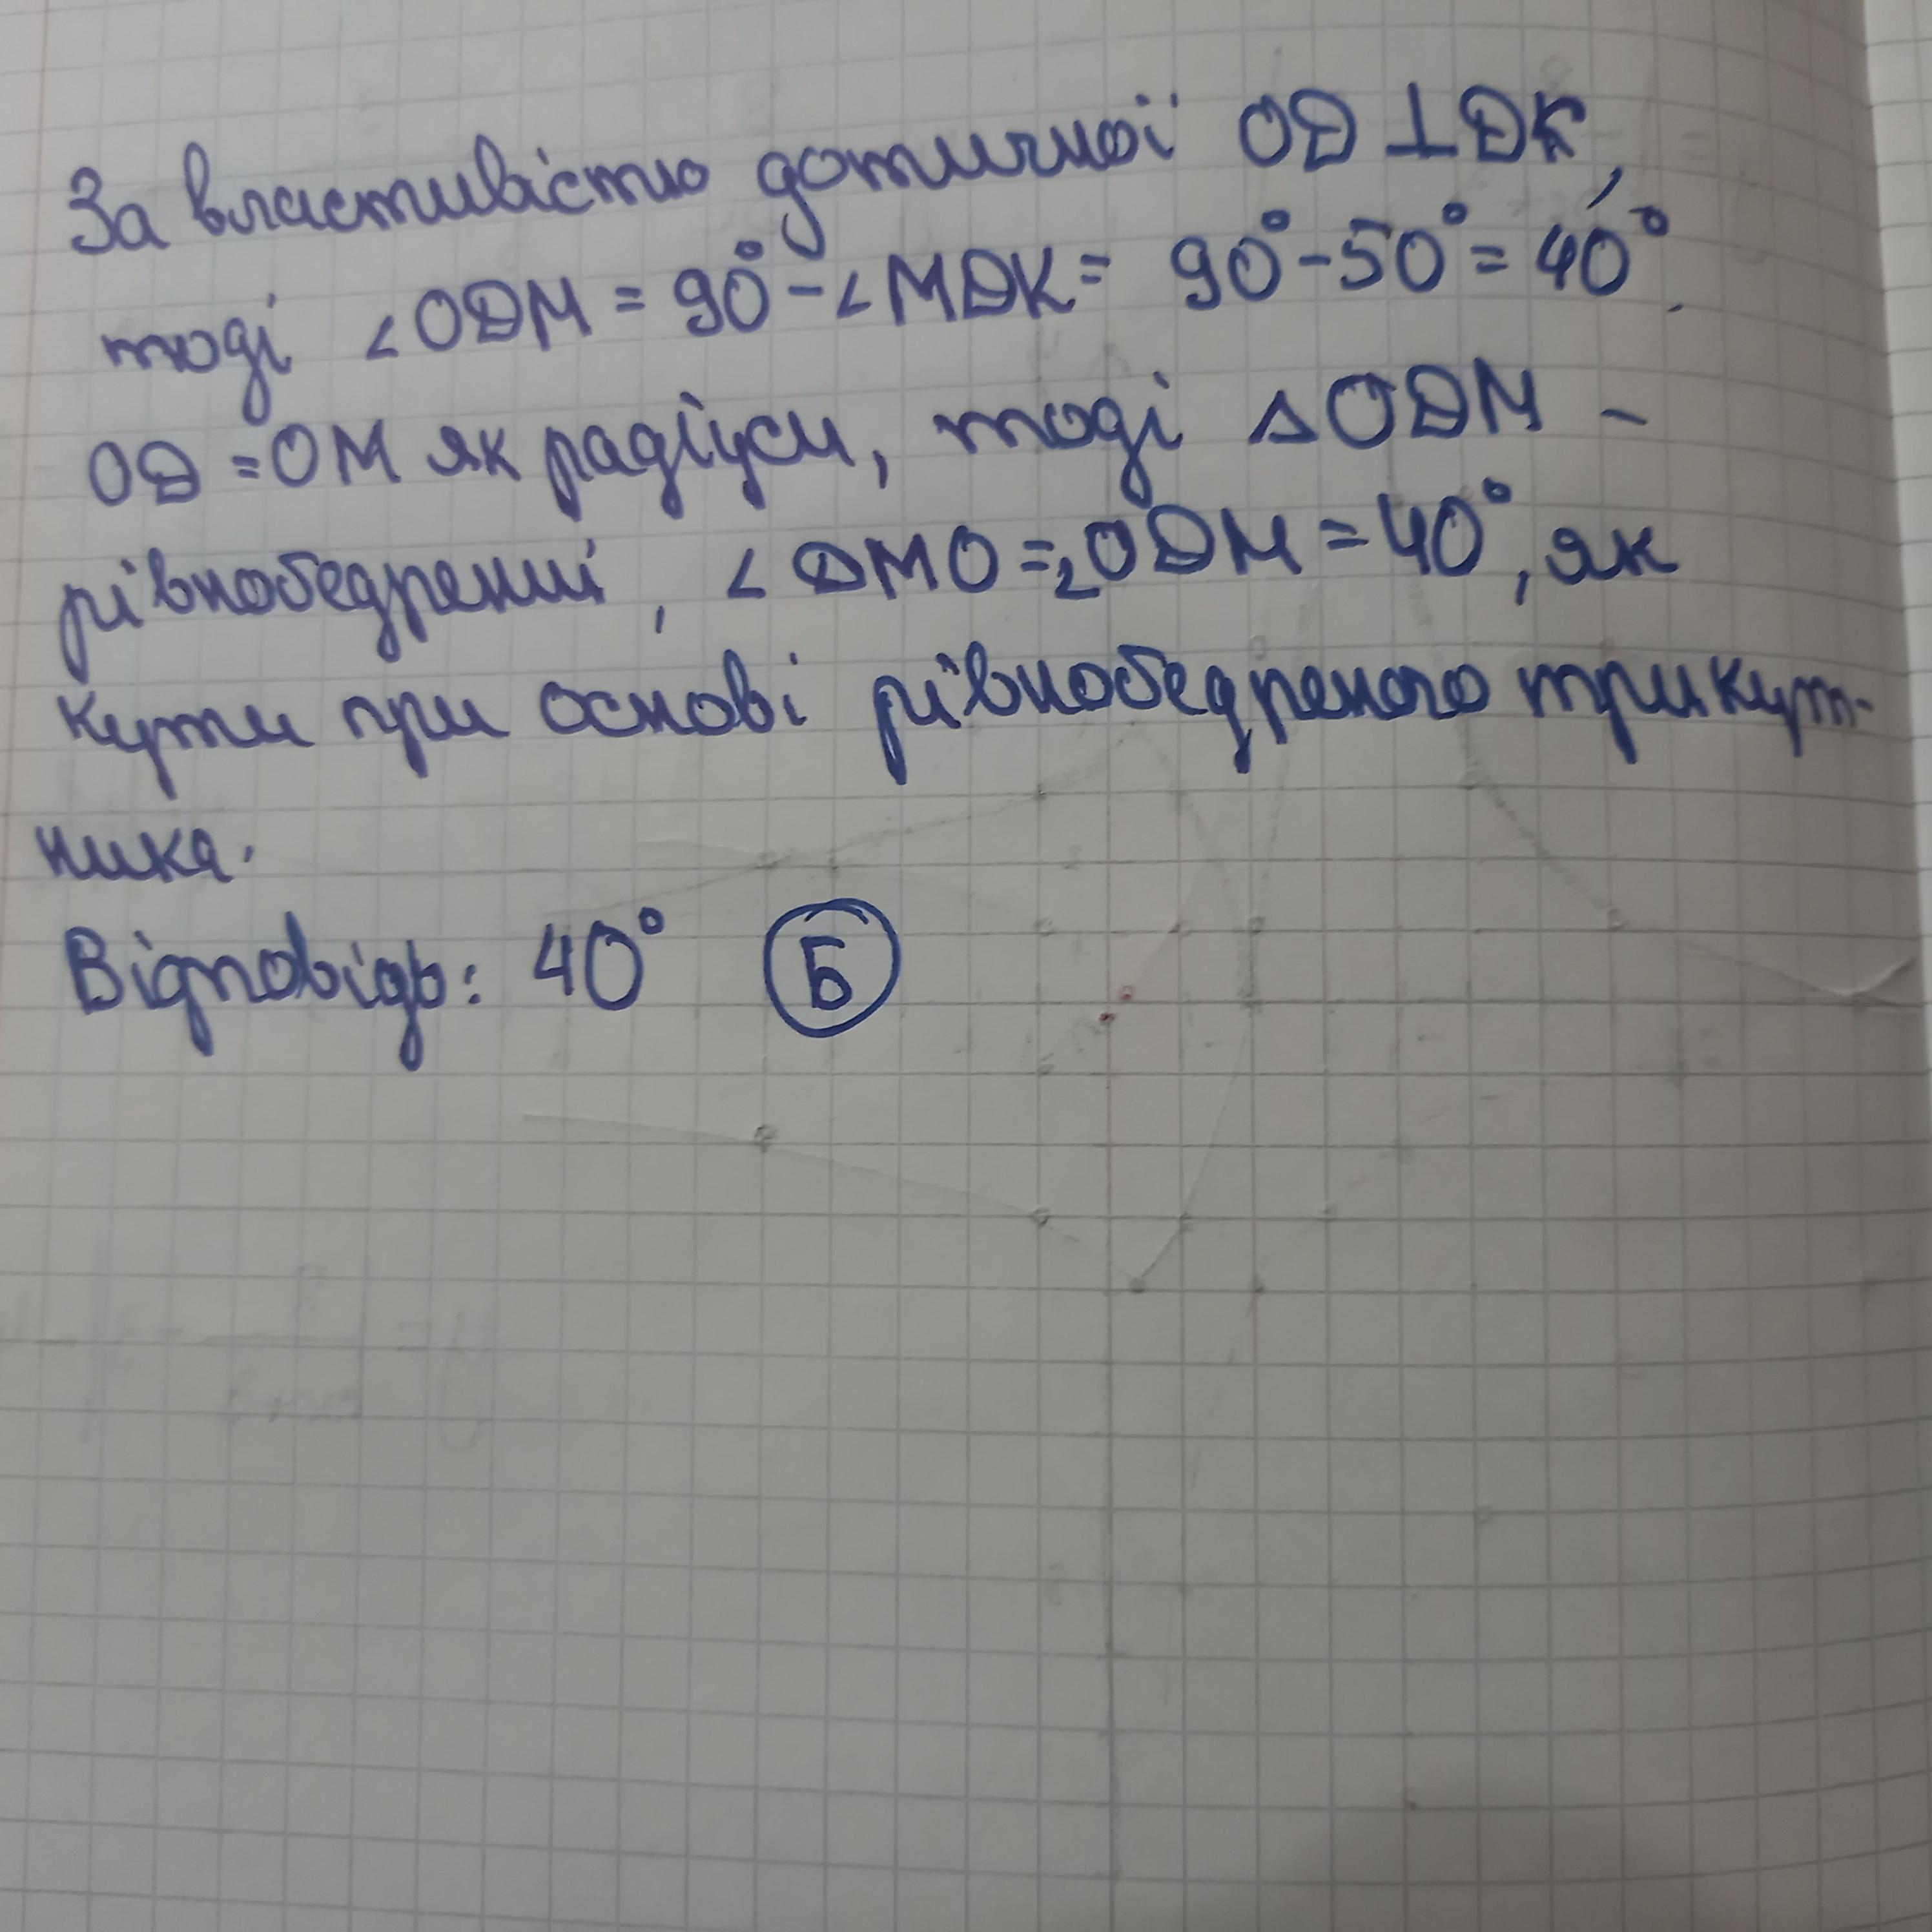 За властивістю дотичної OD ⊥ DK,
тоді ∠ODM = 90° - ∠MDK = 90° - 50° = 40°.
OD = OM як радіуси, тоді △ODM –
рівнобедрений, ∠DMO = ∠ODM = 40°, як
кути при основі рівнобедреного трикут-
ника.
Відповідь: 40° Б